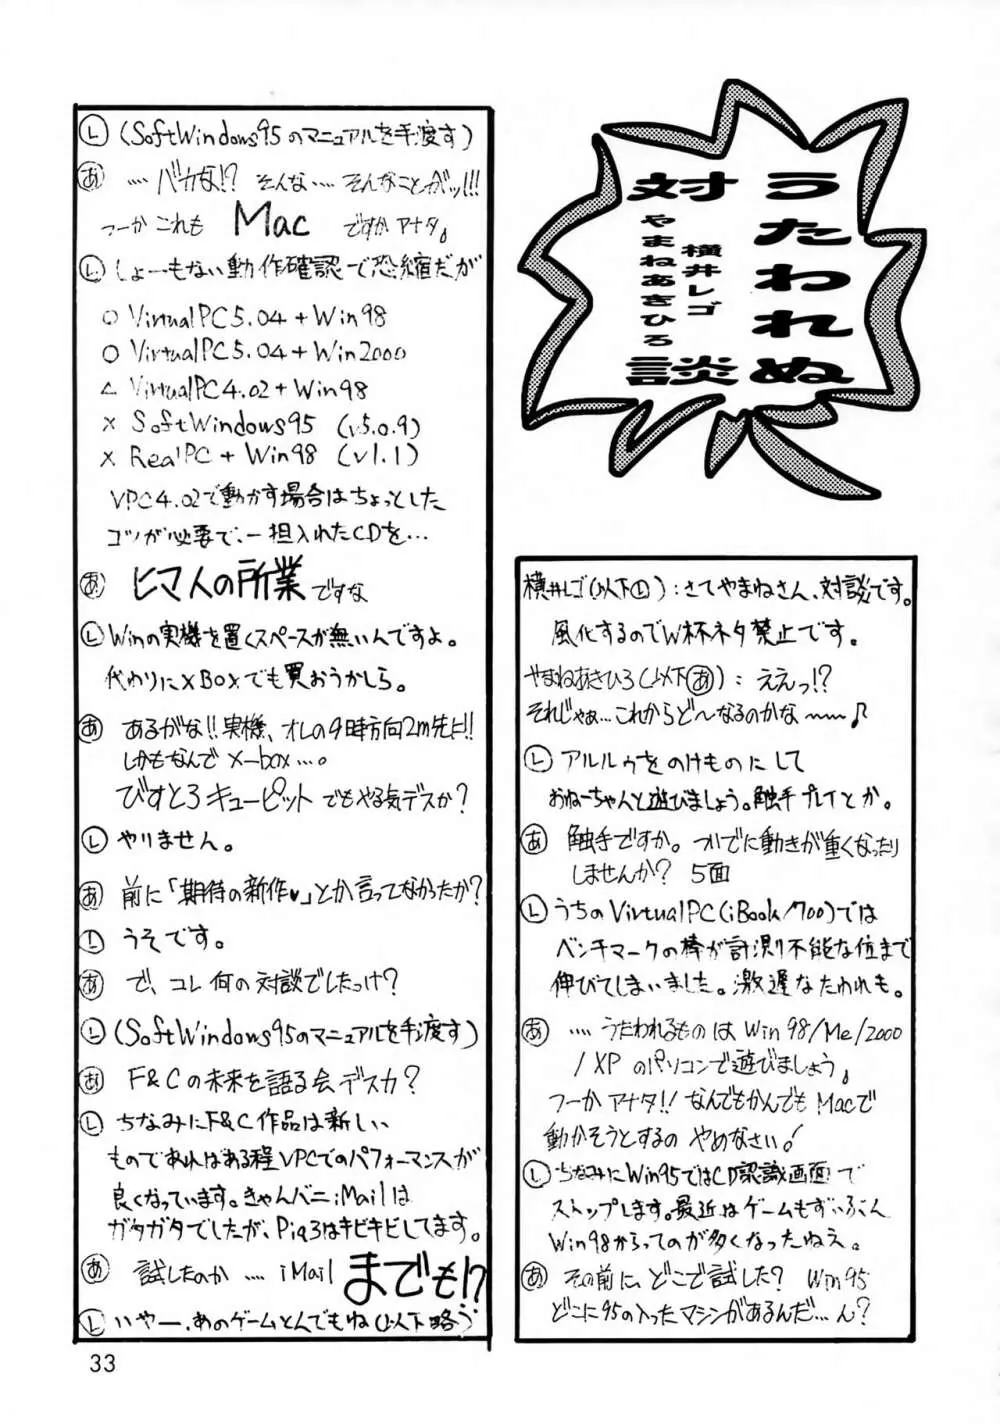 うたわれぬ
対談
横井レゴ
やまねあきひろ
横井レゴ(以下Ⓛ):さてやまねさん、対談です。
風化するのでW杯ネタ禁止です。
やまねあきひろ(以下あ):ええっ!?
それじゃぁ…これからど〜なるのかな〜〜♪
Ⓛ アルルゥをのけものにして
おねーちゃんと遊びましょう。触手プレイとか。
あ 触手ですか。ついでに動きが重くなったり
しませんか? 5面
Ⓛ うちのVirtualPC(iBook/700)では
ベンチマークの棒が計測不能な位まで
伸びてしまいました。激遅なたわれも。
あ ‥‥うたわれるものは Win98/Me/2000
/XP のパソコンで遊びましょう。
つーかアナタ!! なんでもかんでもMacで
動かそうとするの やめなさい!
Ⓛ ちなみにWin95ではCD認識画面で
ストップします。最近はゲームもずいぶん
Win98からってのが多くなったねえ。
あ その前に、どこで試した? Win95
どこに95の入ったマシンがあるんだ…ん?
Ⓛ (SoftWindows95のマニュアルを手渡す)
あ ‥‥バカな!? そんな‥‥そんなことがッ!!!
つーかこれも Mac ですかアナタ。
Ⓛ しょーもない動作確認で恐縮だが
○ VirtualPC5.04+Win98
○ VirtualPC5.04+Win2000
△ VirtualPC4.02+Win98
× SoftWindows95 (v5.0.9)
× RealPC+Win98 (v1.1)
VPC4.02で動かす場合はちょっとした
コツが必要で、一担入れたCDを…
あ ヒマ人の所業ですな
Ⓛ Winの実機を置くスペースが無いんですよ。
代わりにXBOXでも買おうかしら。
あ あるがな!!実機、オレの9時方向2m先に!!
しかもなんでX-box…。
びすとろキューピットでもやる気デスか?
Ⓛ やりません。
あ 前に「期待の新作♥」とか言ってなかったか?
Ⓛ うそです。
あ で、コレ何の対談でしたっけ?
Ⓛ (SoftWindows95のマニュアルを手渡す)
あ F&Cの未来を語る会デスカ?
Ⓛ ちなみにF&C作品は新しい
ものであればある程VPCでのパフォーマンスが
良くなっています。きゃんバニiMailは
ガタガタでしたが、Pia3はキビキビしてます。
あ 試したのか‥‥iMailまでも!?
Ⓛ いやー、あのゲームとんでもね(以下略)
33